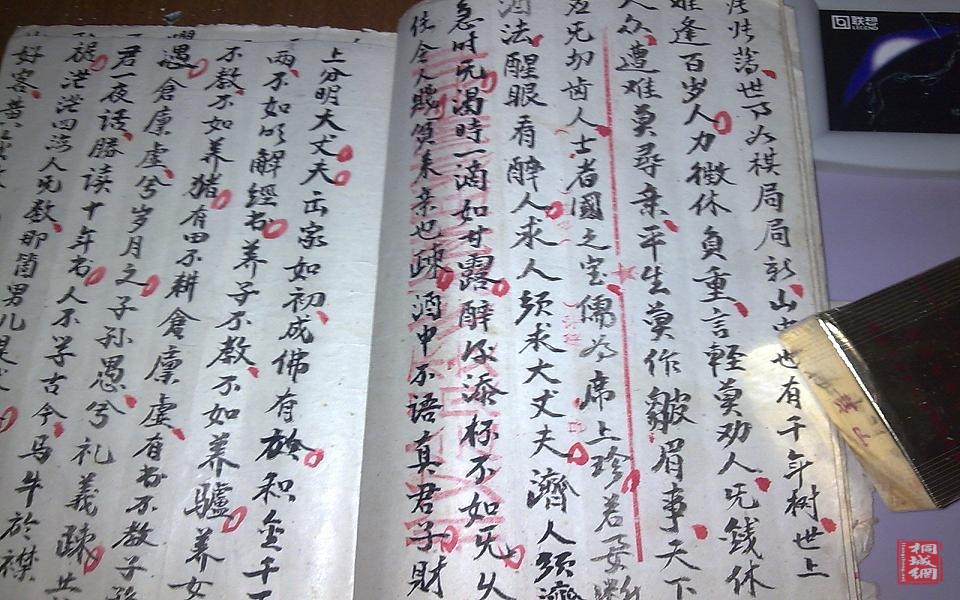 性荡世事如棋局局新山中也有千年树世上
难逢百岁人力微休负重言轻莫劝人无钱休
入众遭难莫寻亲平生莫作皱眉事天下
应无切齿人士者國之宝儒为席上珍若要断
酒法醒眼看醉人求人须求大丈夫濟人须濟
急时无渴時一滴如甘露醉後添杯不如无久
住令人賤貧来亲也疎酒中不语真君子財
上分明大丈夫出家如初成佛有於积金千
两不如明解經书养子不教不如养驢养女
不教不如养猪有田不耕倉廪虚有书不教子孙
愚倉廪虚兮岁月乏子孙愚兮礼義疎共
君一夜话勝读十年书人不学古今马牛於襟
裾茫茫四海人无数那箇男儿是丈
好客黄金
联想
LEGEND
桐城網